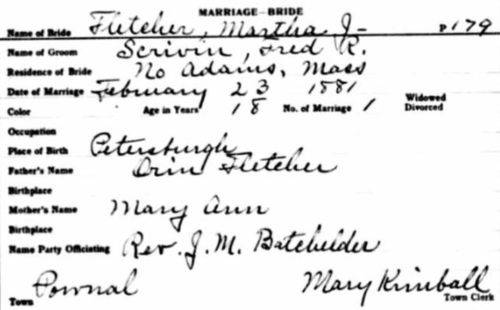 MARRIAGE-BRIDE
Name of Bride Fletcher, Martha J- P 179
Name of Groom Scrivin, Fred R.
Residence of Bride No Adams, Mass
Date of Marriage February 23 1881 Widowed
Color Age in Years 18 No. of Marriage 1 Divorced
Occupation
Place of Birth Petersburgh
Father's Name Orin Fletcher
Birthplace
Mother's Name Mary Ann
Birthplace
Name Party Officiating Rev. J. M. Batchelder
Pownal Mary Kimball
Town Town Clerk